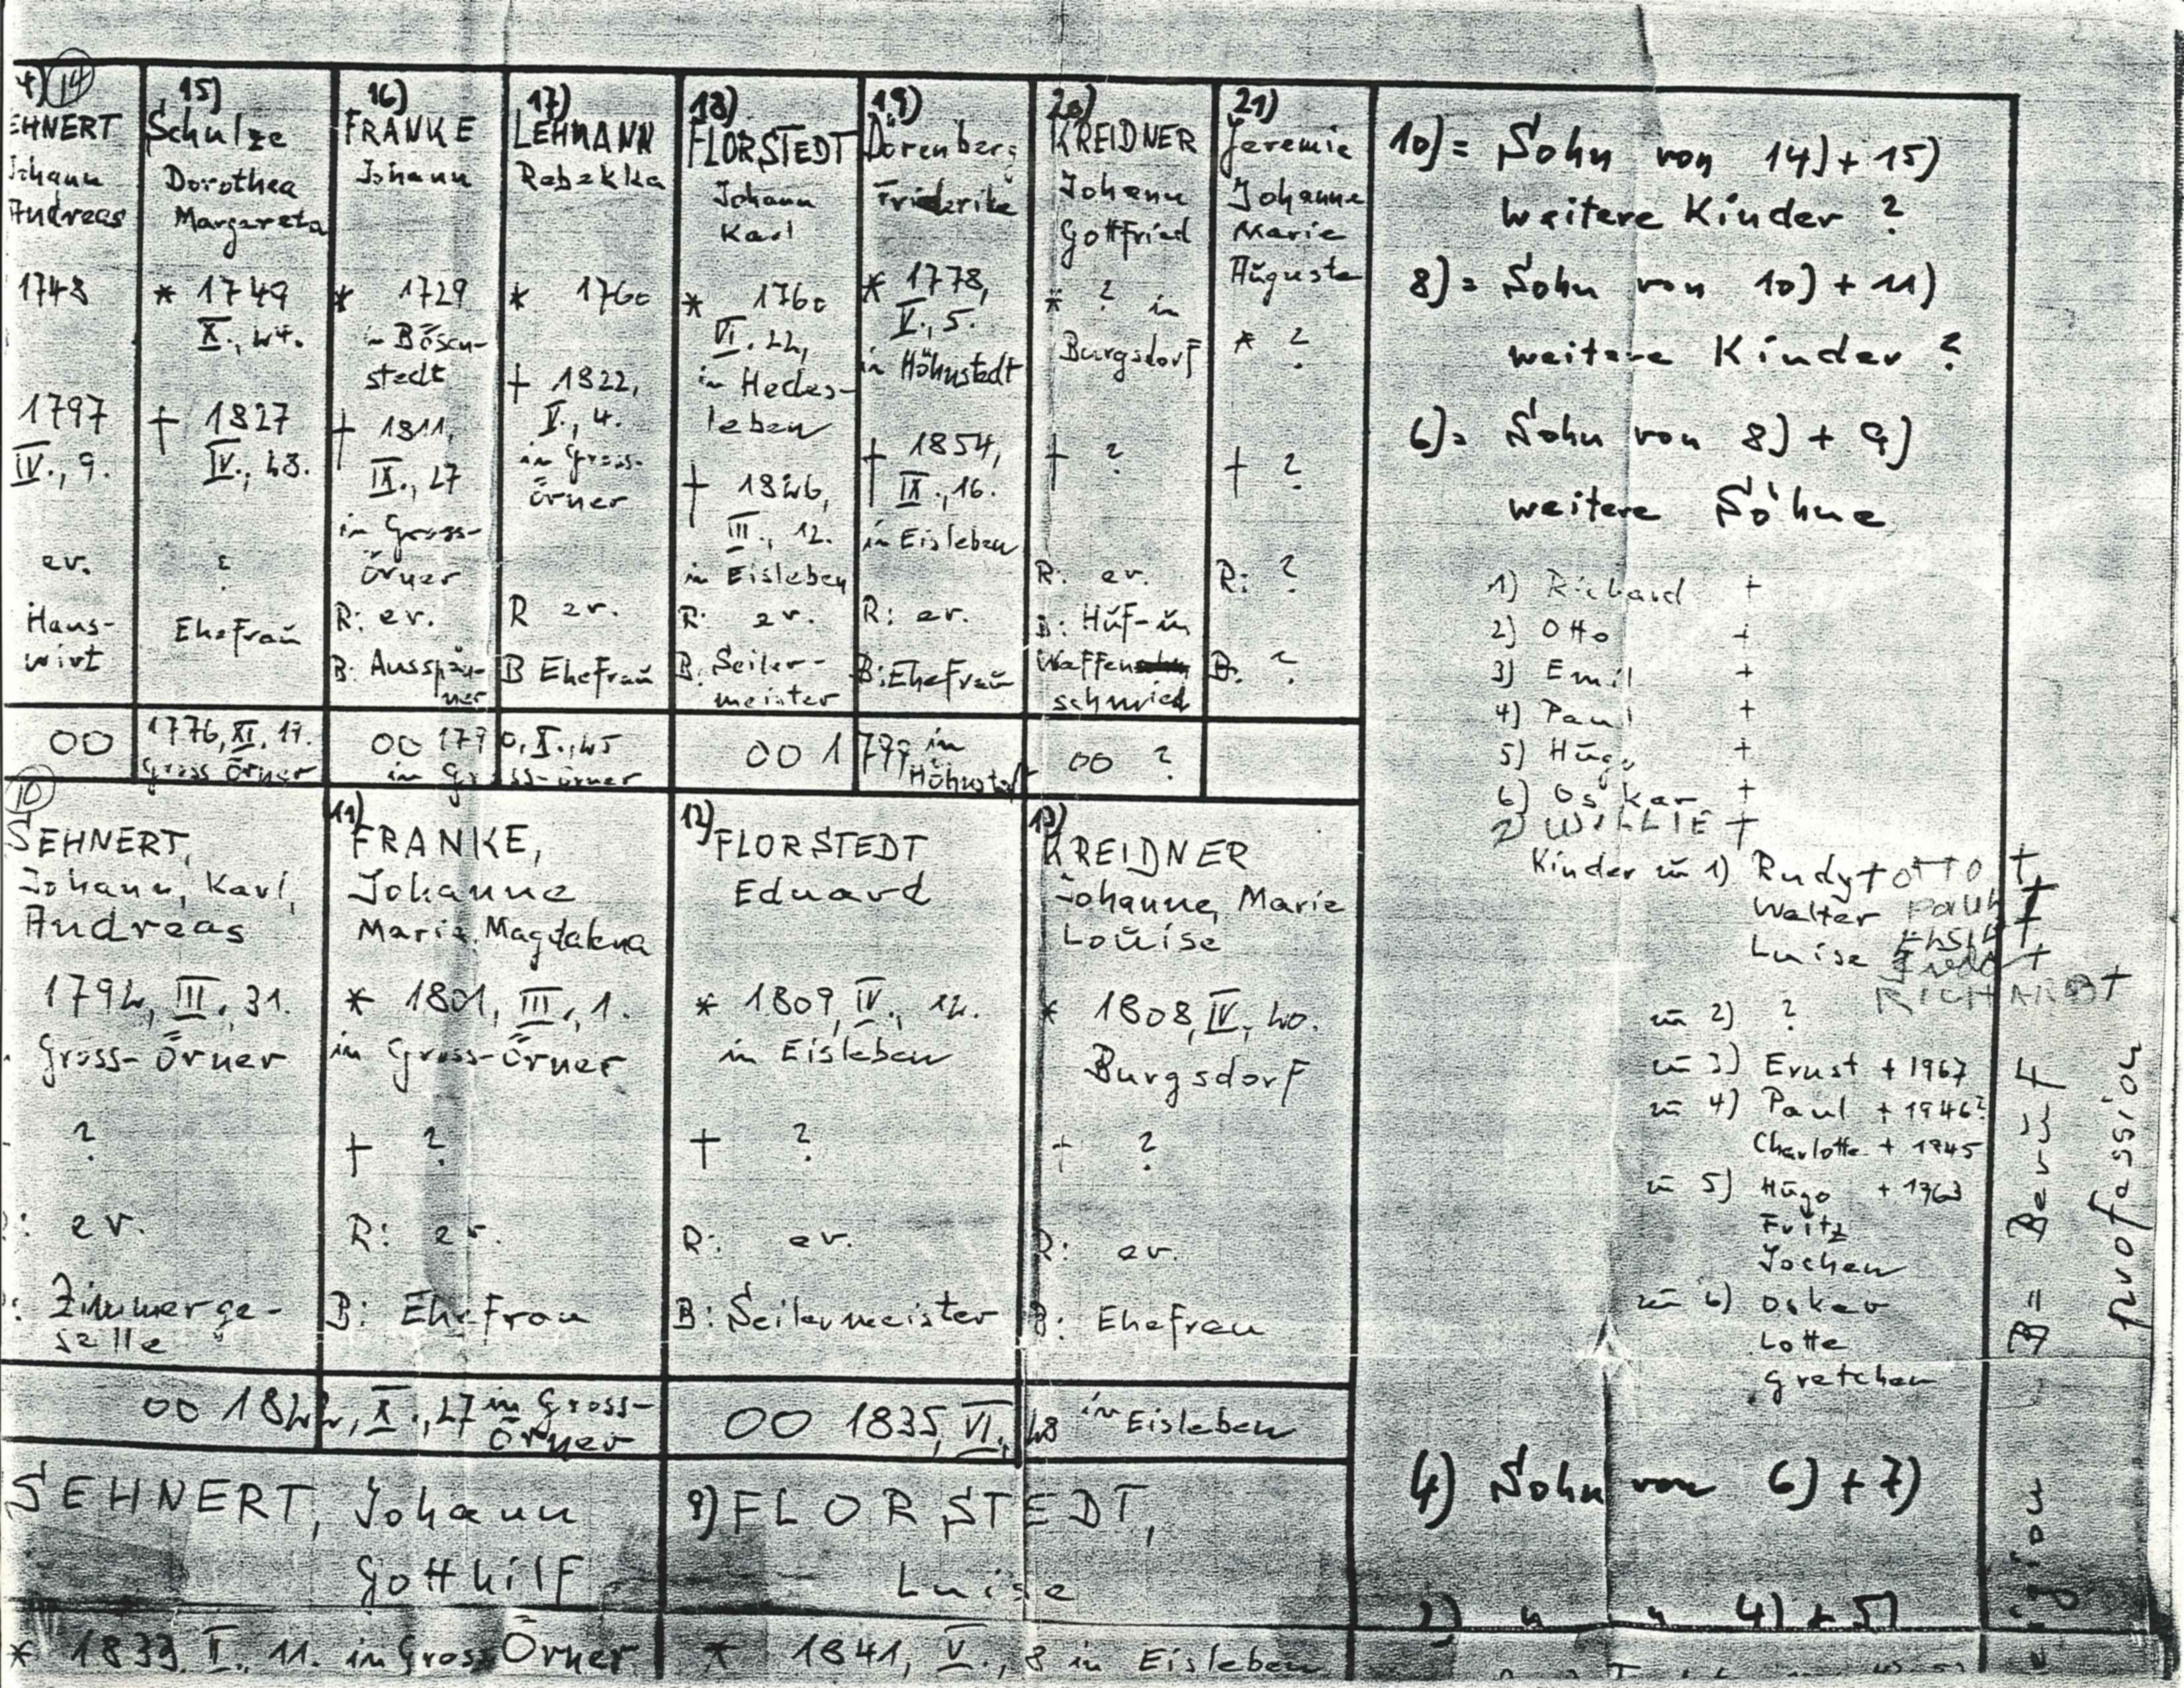 14)
EHNERT
Johann
Andreas
1748
1797
IV., 9.
ev.
Haus-
wirt
15)
Schulze
Dorothea
Margareta
* 1749
X., 24.
† 1827
IV., 23.
?
Ehefraŭ
16)
FRANKE
Johann
* 1729
in Bösen-
stedt
† 1811,
IX., 27
in Gross-
Örner
R: ev.
B: Ausspän-
ner
17)
LEHMANN
Rebekka
* 1760
† 1822,
V., 4.
in Gross-
örner
R ev.
B Ehefraŭ
18)
FLORSTEDT
Johann
Karl
* 1760
VI., 22,
in Heders-
leben
† 1826,
III., 12.
in Eisleben
R: ev.
B: Seiler-
meister
19)
Dörenberg
Friederike
* 1778,
V., 5.
in Höhnstedt
† 1854,
IX., 16.
in Eisleben
R: ev.
B: Ehefraŭ
20)
KREIDNER
Johann
Gottfried
* ? in
Burgsdorf
† ?
R: ev.
B: Hŭf- ŭn
Waffen
schmied
21)
Jeremie
Johanne
Marie
Aŭguste
* ?
† ?
R: ?
B. ?
OO 1776, XI., 19.
Gross Örner
OO 1790, X., 25
in Gross-örner
OO 1799 in
Höhnstedt
OO ?
10)
SEHNERT,
Johann, Karl,
Andreas
1792, III., 31.
Gross-Örner
?
: ev.
: Zimmerge-
selle
11)
FRANKE,
Johanne
Marie, Magdalena
* 1801, III., 1.
in Gross-Örner
† ?
R: ev.
B: Ehefrau
12)
FLORSTEDT
Eduard
* 1809, IV., 12.
in Eisleben
† ?
R: ev.
B: Seilermeister
13)
KREIDNER
Johanne, Marie
Loŭise
* 1808, IV., 20.
Burgsdorf
† ?
R: ev.
B: Ehefrau
OO 1822, X., 27 in Gross-
Örner
OO 1835, VI., 28 in Eisleben
SEHNERT, Johann
Gotthilf
* 1833, II., 11. in Gross Örner
9) FLORSTEDT,
Luise
* 1841, V., 8 in Eisleben
10) = Sohn von 14) + 15)
weitere Kinder ?
8) = Sohn von 10) + 11)
weitere Kinder ?
6) = Sohn von 8) + 9)
weitere Söhne
1) Richard +
2) Otto +
3) Emil +
4) Paul +
5) Hŭgo +
6) Oskar +
7) WILLIE +
Kinder zŭ 1) Rudy + OTTO +
Walter Paul +
Luise
RICHARD +
zŭ 2) ?
zŭ 3) Ernst + 1967
zŭ 4) Paul + 1946?
Charlotte + 1945
zŭ 5) Hŭgo + 1963
Fritz
Jochen
zŭ 6) Oskar
Lotte
Gretchen
4) Sohn von 6) + 7)
2) " " 4) + 5)
B = Berŭf
profession